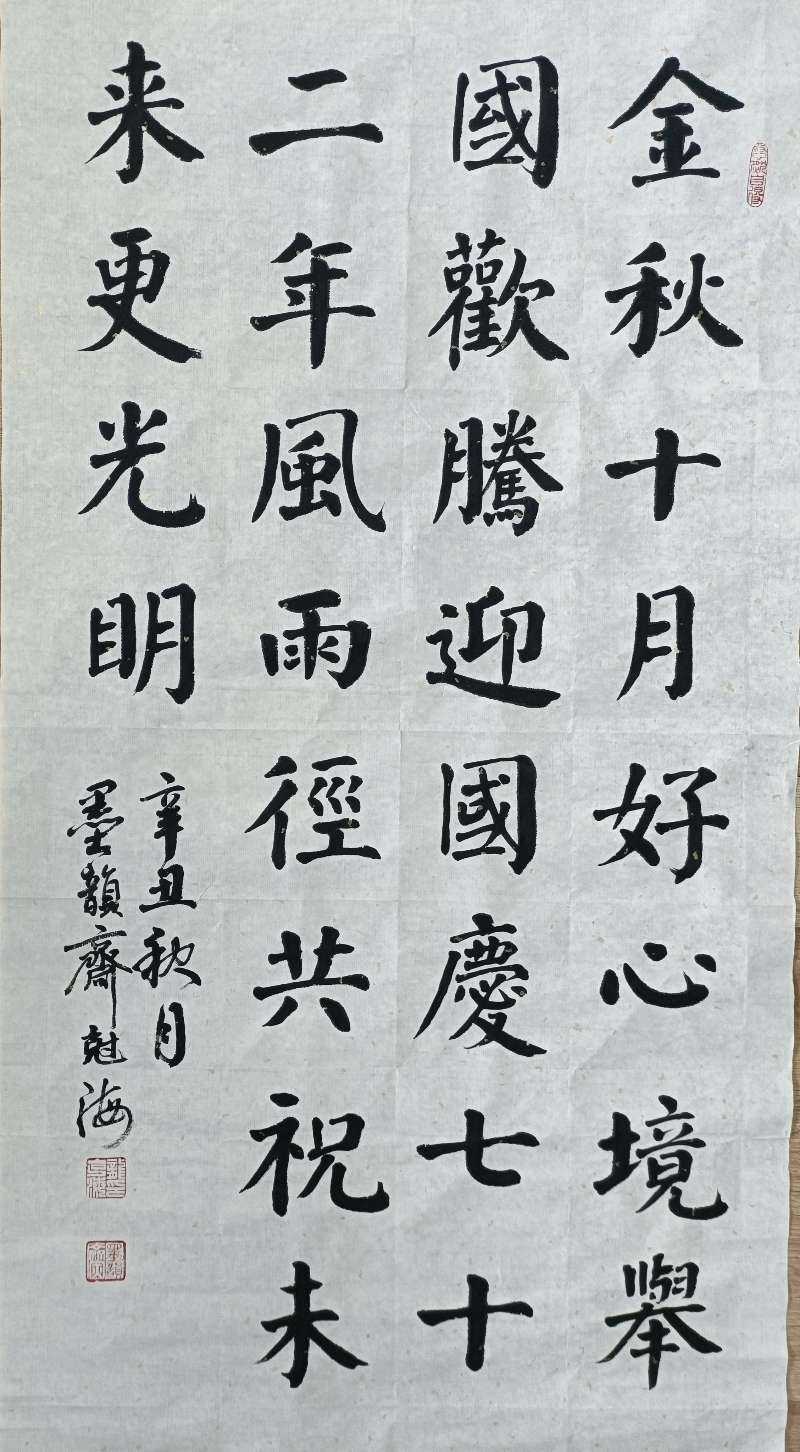 金秋十月好心境舉
國歡騰迎國慶七十
二年風雨徑共祝未
来更光明
辛丑秋月
墨韻齋尅海